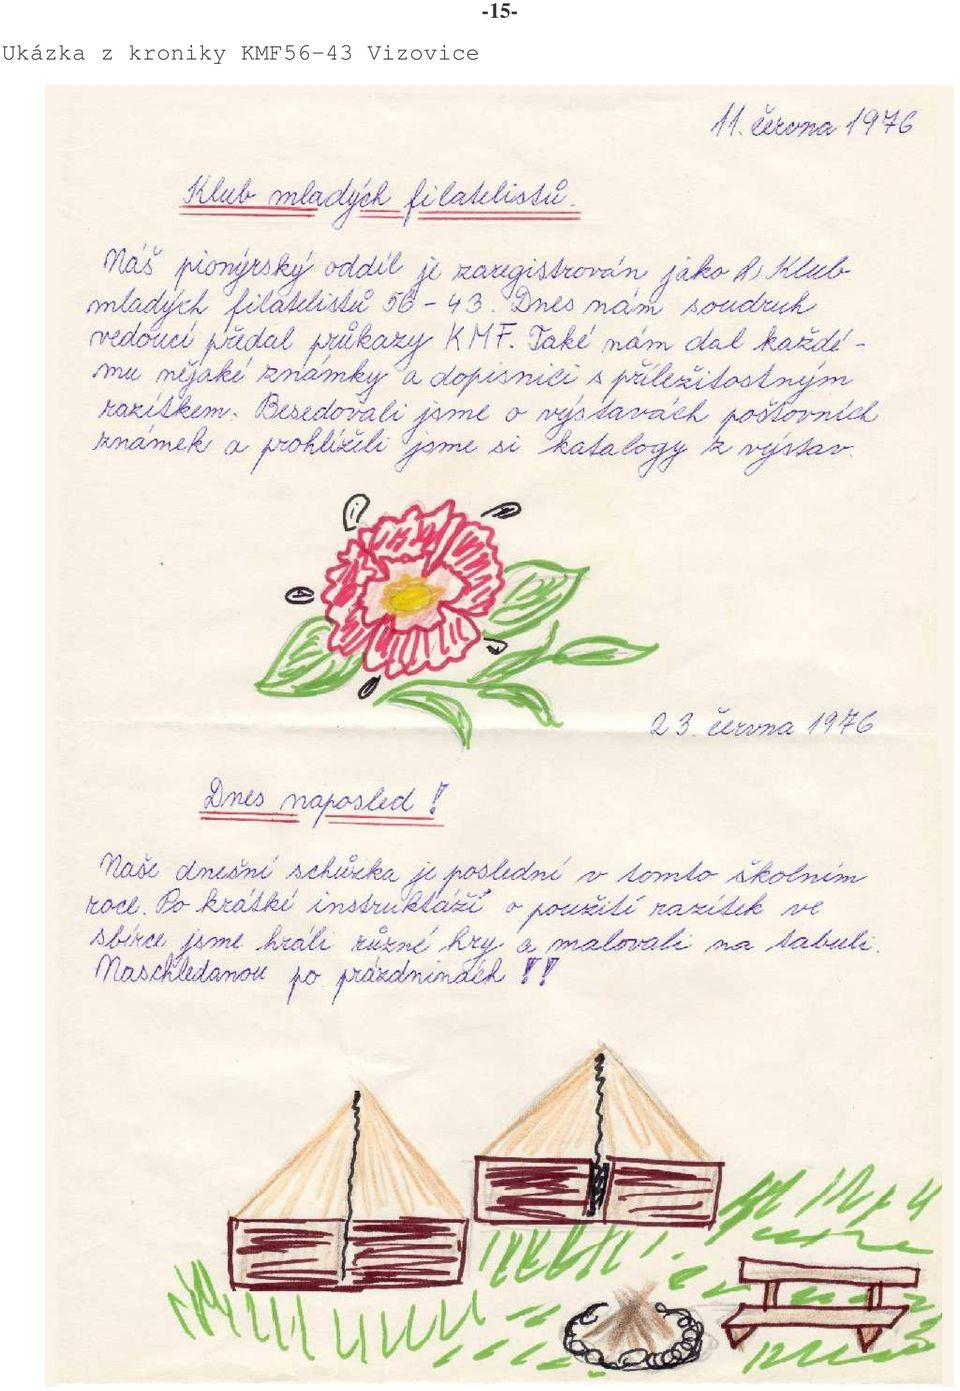 -15-
Ukázka z kroniky KMF56-43 Vizovice
11. června 1976
Klub mladých filatelistů.
Náš pionýrský oddíl je zaregistrován jako Klub
mladých filatelistů 56 - 43. Dnes nám soudruh
vedoucí předal průkazy KMF. Také nám dal každé -
mu nějaké známky a dopisnici s příležitostným
razítkem. Besedovali jsme o výstavách poštovních
známek a prohlíželi jsme si katalogy z výstav.
23. června 1976
Dnes naposled !
Naše dnešní schůzka je poslední v tomto školním
roce. Po krátké instruktáži o použití razítek ve
sbírce jsme hráli různé hry a malovali na tabuli.
Naschledanou po prázdninách !!